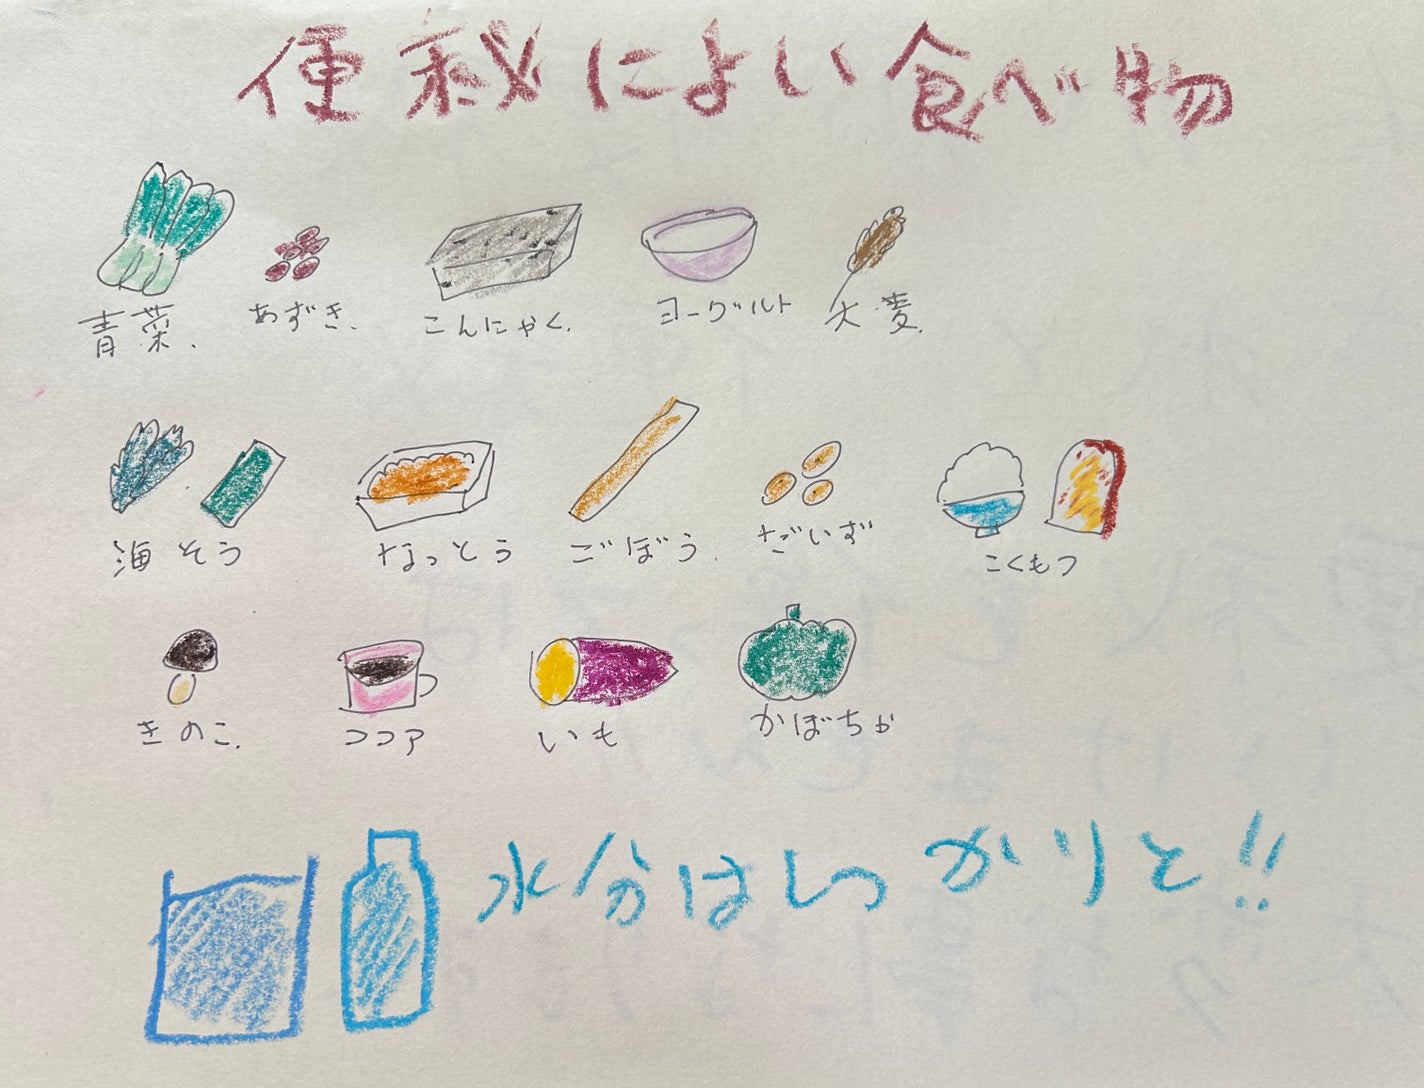 便秘によい食べ物
青菜. あずき. こんにゃく. ヨーグルト 大麦.
海そう なっとう ごぼう. だいず こくもつ
きのこ. ココア いも かぼちゃ
水分はしっかりと!!